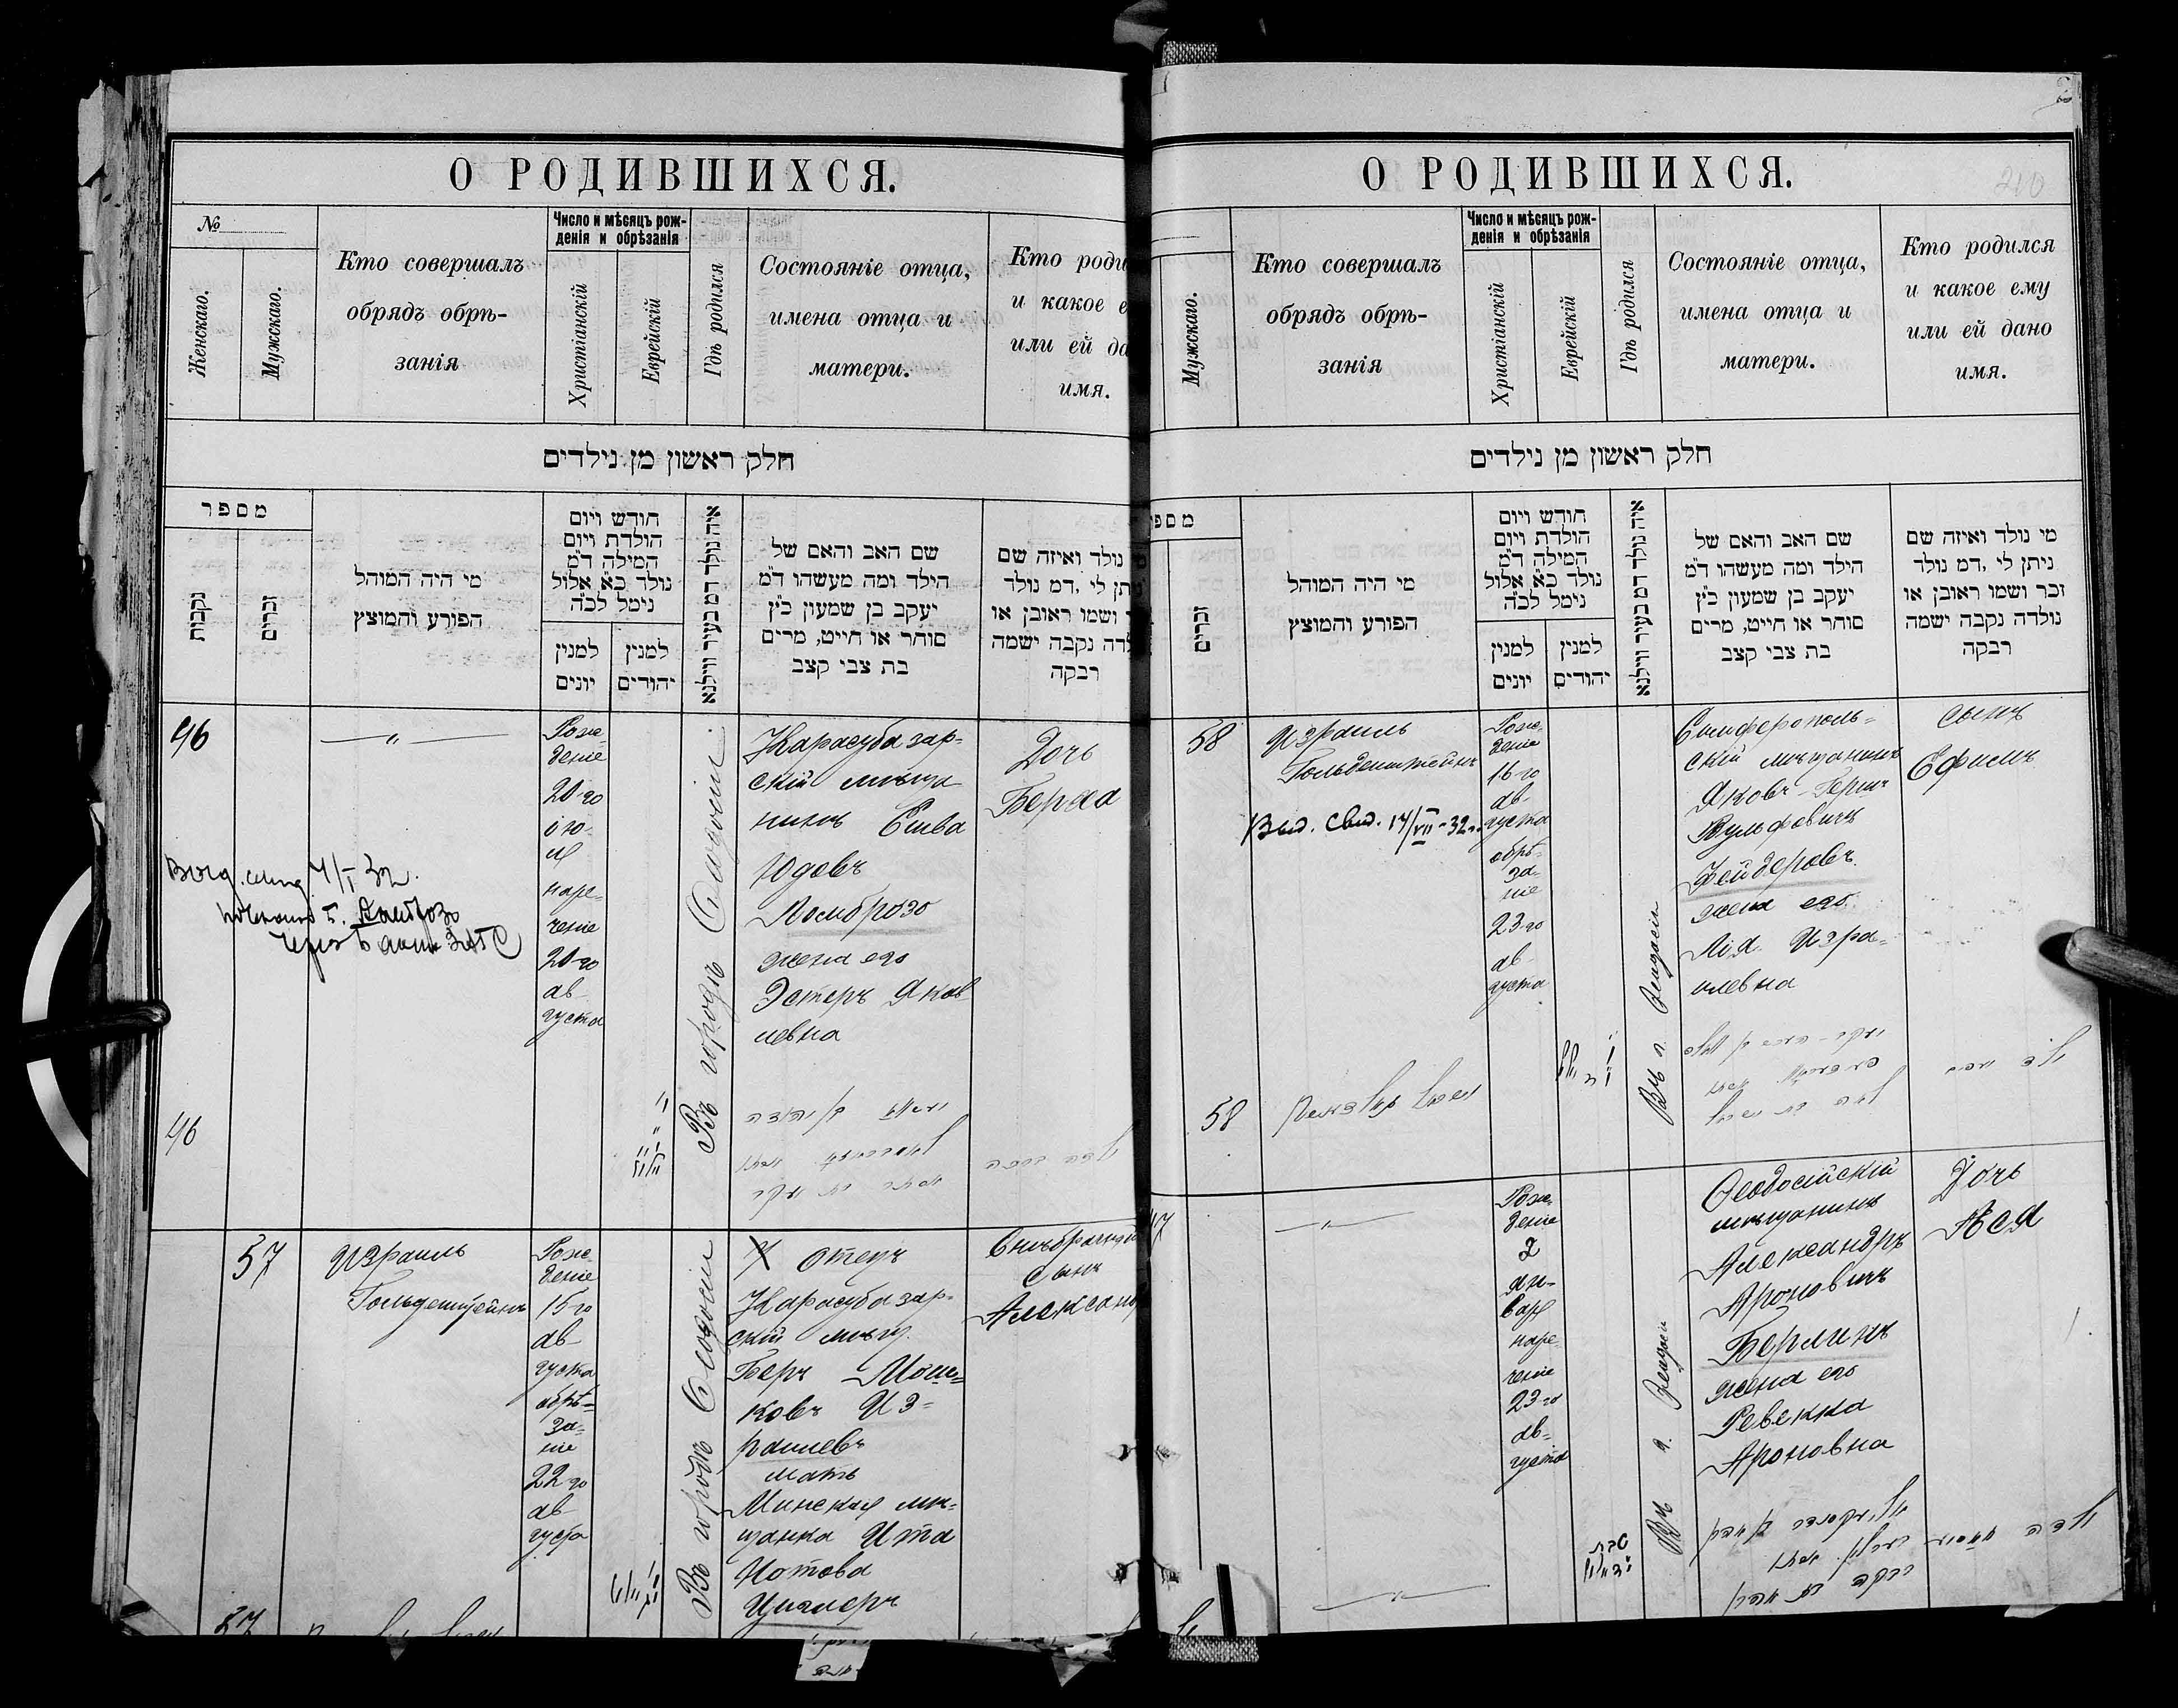 О РОДИВШИХСЯ.
№
Женскаго.
Мужскаго.
Кто совершалъ
обрядъ обрѣ-
занія
Число и мѣсяцъ рож-
денія и обрѣзанія
Христіанскій
Еврейскій
Гдѣ родился
Состояніе отца,
имена отца и
матери.
Кто роди
и какое е
или ей да
имя.
חלק ראשון מן נילדים
מספר
נקבות
זכרים
מי היה המוהל
הפורע והמוצץ
חודש ויום
הולדת ויום
המילה ד״מ
נולד כ״א אלול
נימל לכ״ה
למנין
יונים
למנין
יהודים
איה נולד דמ בעיר ווילנא
שם האב והאם של
הילד ומה מעשהו ד״מ
יעקב בן שמעון כ״ץ
סוחר או חייט, מרים
בת צבי קצב
נולד ואיזה שם
ניתן לי ,דמ נולד
ושמו ראובן או
נולדה נקבה ישמה
רבקה
46
— „ —
Рож-
деніе
20-го
ію-
ля
наре-
ченіе
20-го
ав-
густа
Въ городѣ Ѳеодосіи
Карасубазар-
скій мѣща
нинъ Ешва
Юдовъ
Ломброзо
жена его
Эстеръ Яков-
левна
Дочь
Берха
46
57
Израиль
Гольденштейнъ
Рож-
деніе
15-го
ав-
густа
обрѣ-
за-
ніе
22-го
ав-
густа
Въ городѣ Ѳеодосіи
Отецъ
Карасубазар-
скій мѣщ.
Беръ Мош-
ковъ Из-
раилевъ
мать
Минская мѣ-
щанка Ита
Нотова
Внѣбрачный
сынъ
Александ
57
О РОДИВШИХСЯ.
210
Мужскаго.
Кто совершалъ
обрядъ обрѣ-
занія
Число и мѣсяцъ рож-
денія и обрѣзанія
Христіанскій
Еврейскій
Гдѣ родился
Состояніе отца,
имена отца и
матери.
Кто родился
и какое ему
или ей дано
имя.
חלק ראשון מן נילדים
מספ
זכרים
מי היה המוהל
הפורע והמוצץ
חודש ויום
הולדת ויום
המילה ד״מ
נולד כ״א אלול
נימל לכ״ה
למנין
יונים
למנין
יהודים
איה נולד דמ בעיר ווילנא
שם האב והאם של
הילד ומה מעשהו ד״מ
יעקב בן שמעון כ״ץ
סוחר או חייט, מרים
בת צבי קצב
מי נולד ואיזה שם
ניתן לי ,דמ נולד
זכר ושמו ראובן או
נולדה נקבה ישמה
רבקה
58
Израиль
Гольденштейнъ
Выд. свид. 14/VII-32г.
Рож-
деніе
16-го
ав-
густа
обрѣ-
за-
ніе
23-го
ав-
густа
Въ г. Ѳеодосіи
Симферополь-
скій мѣщанинъ
Яковъ-Герш
Вульфовичъ
Фейдеровъ
жена его
Лія Изра-
илевна
Сынъ
Ефимъ
58
47
— „ —
Рож-
деніе
2
Ян-
варя
наре-
ченіе
23-го
ав-
густа
Въ г. Ѳеодосіи
Ѳеодосійскій
мѣщанинъ
Александръ
Ароновичъ
Берлинъ
жена его
Ревекка
Ароновна
Дочь
Ася